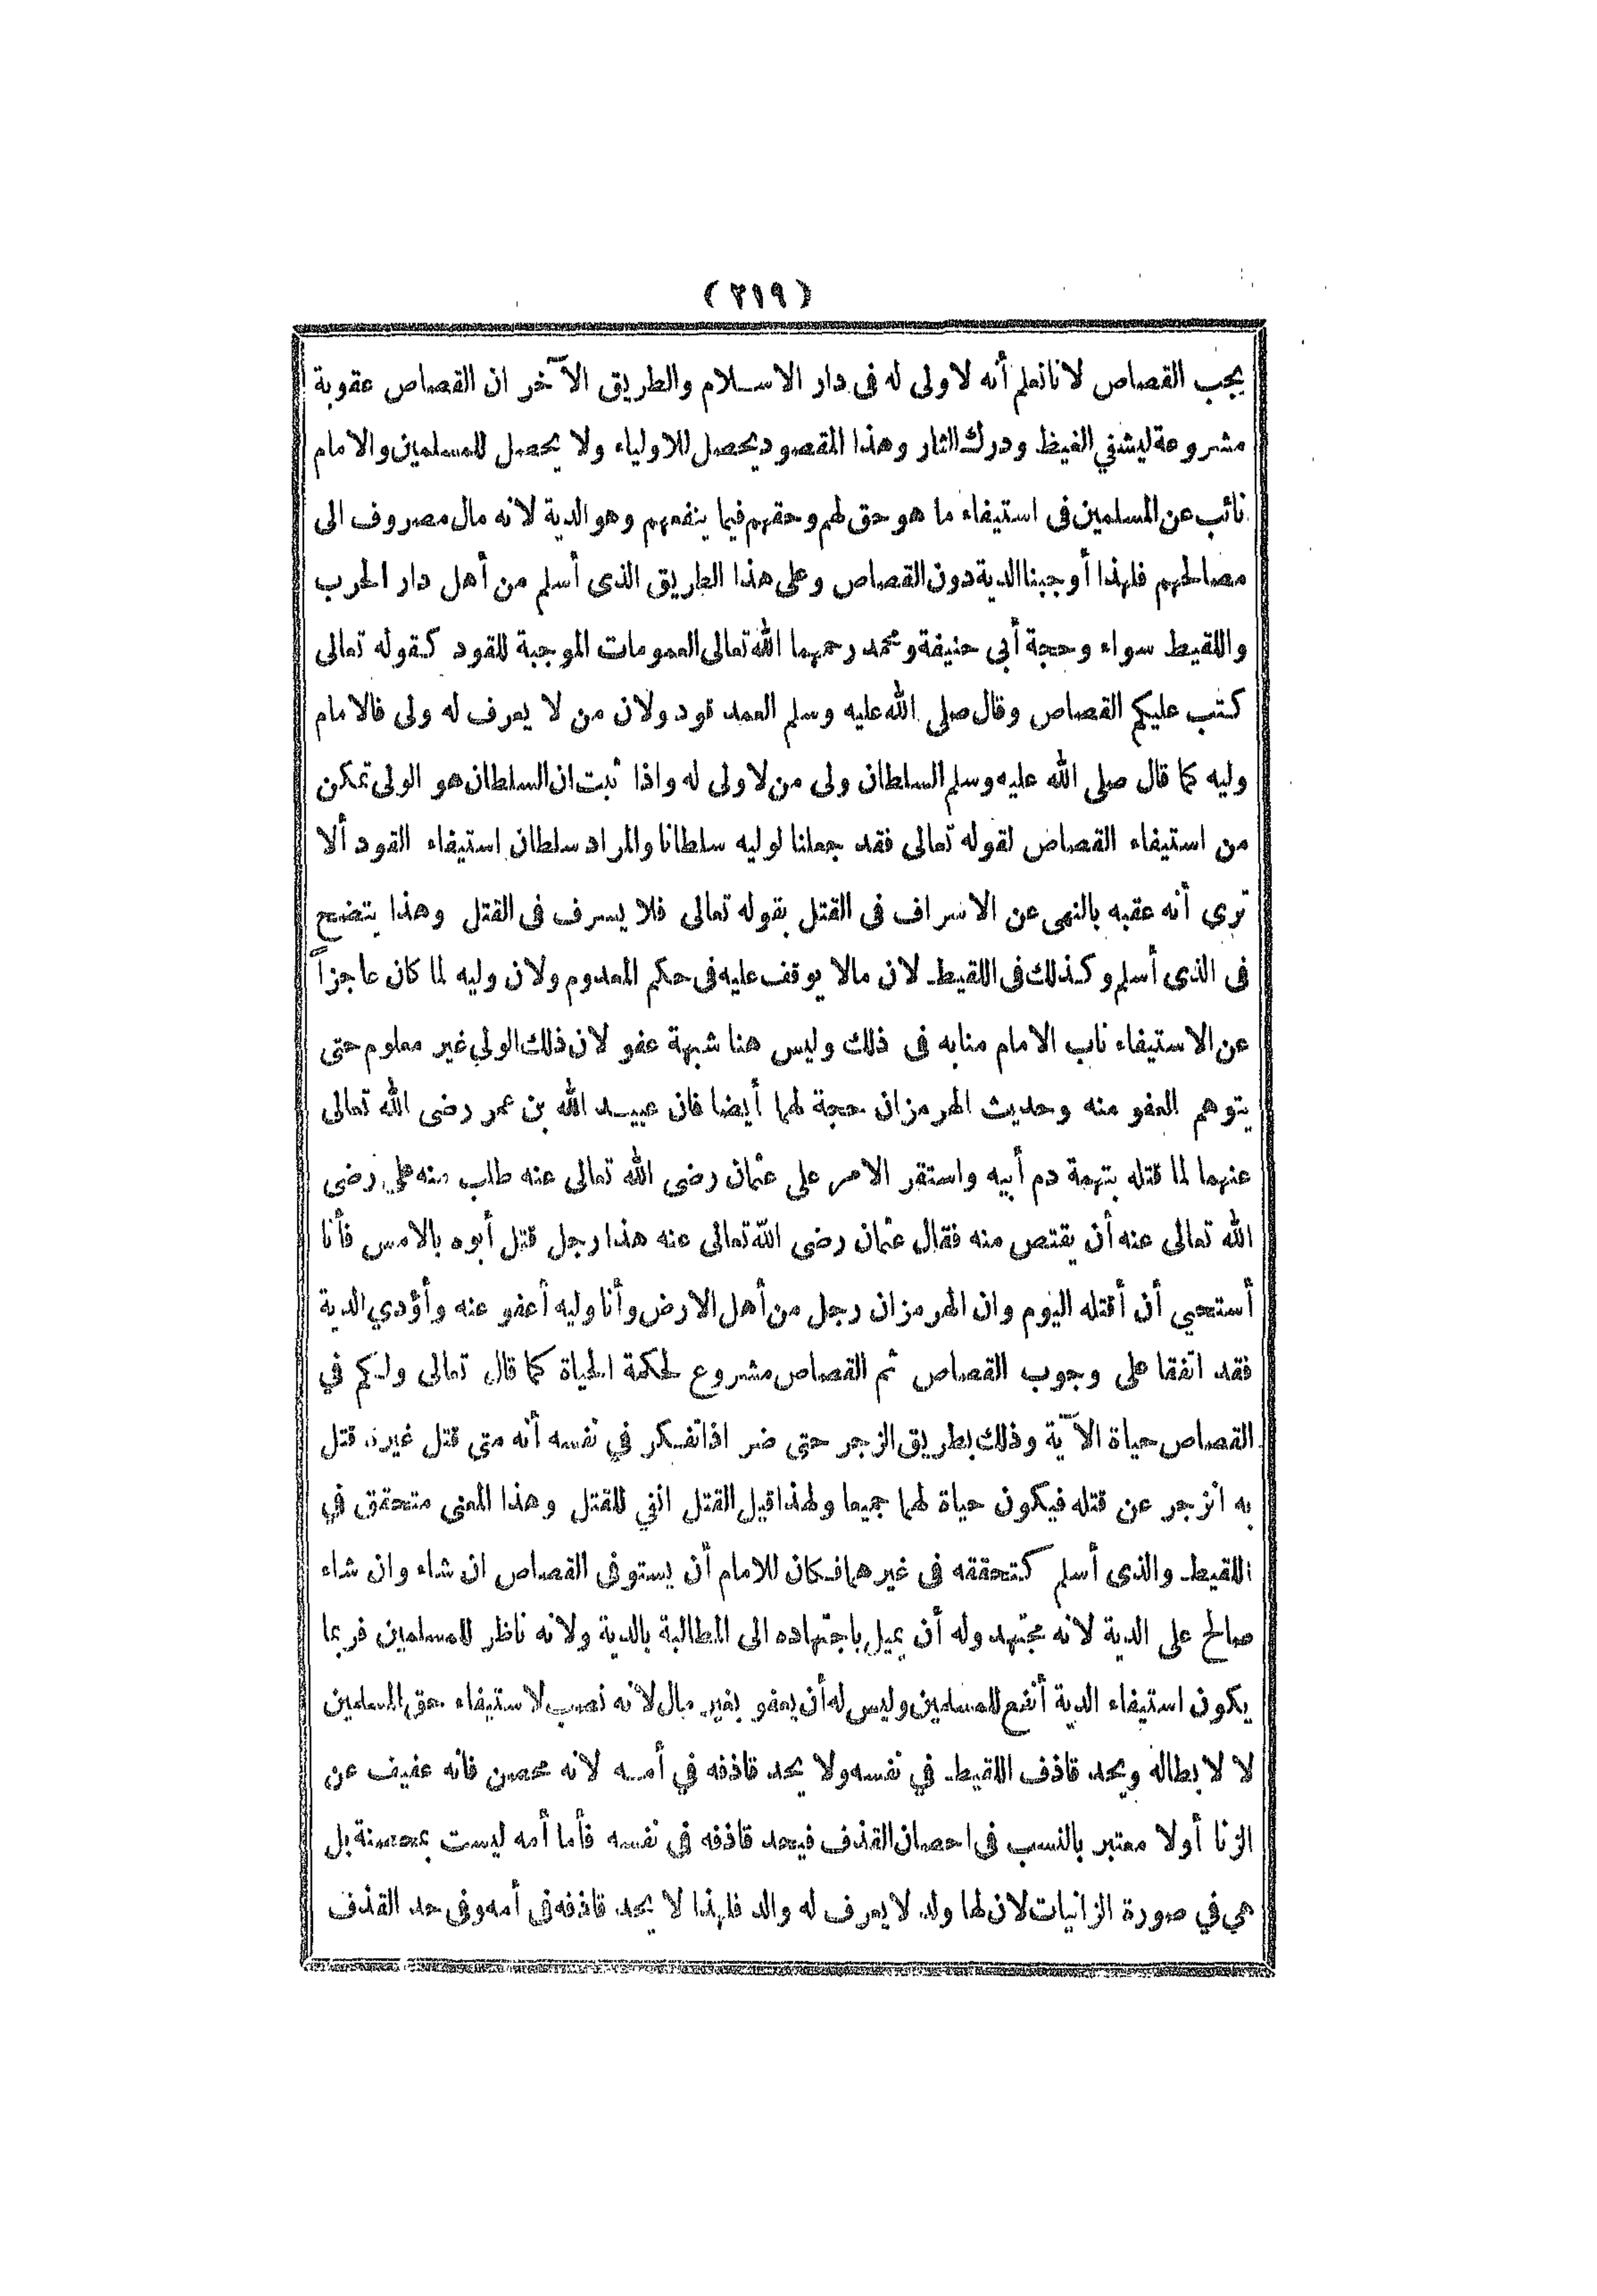 (٢١٩)
يجب القصاص لانا نعلم أنه لا ولى له فى دار الاسلام والطريق الآخر ان القصاص عقوبة
مشروعة ليشفي الغيظ ودرك الثار وهذا المقصود يحصل للاولياء ولا يحصل للمسلمين والامام
نائب عن المسلمين فى استيفاء ما هو حق لهم وحقهم فيما ينفعهم وهو الدية لانه مال مصروف الى
مصالحهم فلهذا أوجبنا الدية دون القصاص وعلى هذا الطريق الذى أسلم من أهل دار الحرب
واللقيط سواء وحجة أبى حنيفة ومحمد رحمهما الله تعالى العمومات الموجبة للقود كقوله تعالى
كتب عليكم القصاص وقال صلى الله عليه وسلم العمد قود ولان من لا يعرف له ولى فالامام
وليه كما قال صلى الله عليه وسلم السلطان ولى من لا ولى له واذا ثبت ان السلطان هو الولى تمكن
من استيفاء القصاص لقوله تعالى فقد جعلنا لوليه سلطانا والمراد سلطان استيفاء القود ألا
ترى أنه عقبه بالنهى عن الاسراف فى القتل بقوله تعالى فلا يسرف فى القتل وهذا يتضح
فى الذى أسلم وكذلك فى اللقيط لان مالا يوقف عليه فى حكم المعدوم ولان وليه لما كان عاجزاً
عن الاستيفاء ناب الامام منابه فى ذلك وليس هنا شبهة عفو لان ذلك الولي غير معلوم حتى
يتوهم العفو منه وحديث الهرمزان حجة لهما أيضا فان عبيد الله بن عمر رضى الله تعالى
عنهما لما قتله بتهمة دم أبيه واستقر الامر على عثمان رضى الله تعالى عنه طلب منه على رضى
الله تعالى عنه أن يقتص منه فقال عثمان رضى الله تعالى عنه هذا رجل قتل أبوه بالامس فأنا
أستحيي أن أقتله اليوم وان الهرمزان رجل من أهل الارض وأنا وليه أعفو عنه وأؤدي الدية
فقد اتفقا على وجوب القصاص ثم القصاص مشروع لحكمة الحياة كما قال تعالى ولكم في
القصاص حياة الآية وذلك بطريق الزجر حتى ضر اذا تفكر في نفسه أنه متى قتل غيره قتل
به انزجر عن قتله فيكون حياة لهما جميعا ولهذا قيل القتل انفي للقتل وهذا المعنى متحقق في
اللقيط والذى أسلم كتحققه فى غيرهما فكان للامام أن يستوفى القصاص ان شاء وان شاء
صالح على الدية لانه مجتهد وله أن يميل باجتهاده الى المطالبة بالدية ولانه ناظر للمسلمين فربما
يكون استيفاء الدية أنفع للمسلمين وليس له أن يعفو بغير مال لانه نصب لاستيفاء حق المسلمين
لا لابطاله ويحد قاذف اللقيط في نفسه ولا يحد قاذفه في أمه لانه محصن فانه عفيف عن
الزنا أولا معتبر بالنسب فى احصان القذف فيحد قاذفه فى نفسه فأما أمه ليست بمحصنة بل
هي في صورة الزانيات لان لها ولد لا يعرف له والد فلهذا لا يحد قاذفه فى أمه وفى حد القذف